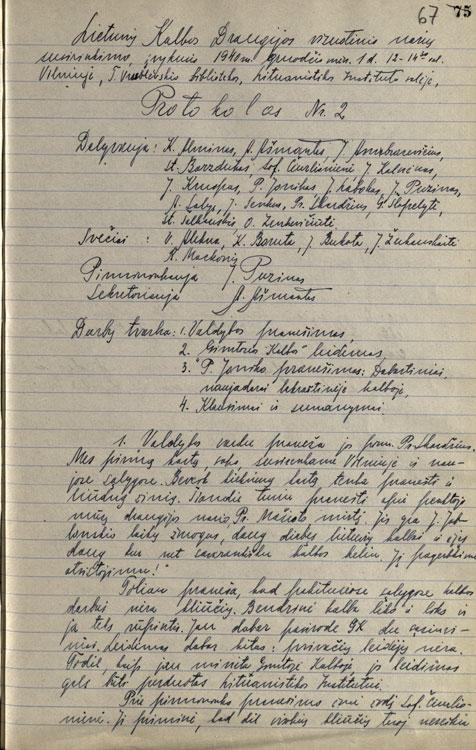 67 75
Lietuvių Kalbos Draugijos visuotinio narių
susirinkimo, įvykusio 1940 m. gruodžio mėn. 1 d. 12–14 val.
Vilniuje, Vrublevskio bibliotekos, Lituanistikos Instituto salėje,
Protokolas Nr. 2
Dalyvauja: K. Alminas, A. Ašmantas, J. Ambrazevičius,
St. Barzdukas, Sof. Čiurlionienė, J. Kalnėnas,
J. Kruopas, P. Jonikas, J. Kabelka, J. Puzinas,
A. Salys, J. Senkus, Pr. Skardžius, G. Šlapelytė,
St. Šalkauskis, O.
Svečiai: V. K. Boruta, J. Bukota, J. Žukauskaitė
K. Mackonis
Pirmininkauja J. Puzinas
Sekretoriauja A. Ašmantas
Darbų tvarka: 1. Valdybos pranešimas
2. Gimtosios Kalbos leidimas
3. P. Joniko pranešimas: Dabartiniai
naujadarai laikraštinėje kalboje,
4. Klausimai ir sumanymai.
1. Valdybos vardu praneša jos pirm. Pr. Skardžius.
Mes pirmą kartą, sako, susirenkame Vilniuje ir nau-
jose sąlygose. Beveik kiekvieną kartą tenka pranešti ir
liūdną žinią. Šiandie turiu pranešti apie
mūsų draugijos nario Pr. Mašioto mirtį. Jis yra J. Jab-
lonskio laikų žmogus, daug dirbęs lietuvių kalbai ir ėjęs
daug kur net savarankišku kalbos keliu. Jį pagerbkime
atsistojimu!"
Toliau praneša, kad pakitusiose sąlygose kalbos
darbui nėra kliūčių. Bendrinė kalba liko ir
ja teks rūpintis. Jau dabar pasirodė GK du
niai. Leidimas dabar kitas: privačių leidėjų nėra.
Todėl, kaip jau minėta Gimtoji Kalboje jos leidimas
gali būti perduotas Lituanistikos Institutui.
Prie pirmininko pranešimo ima žodį Sof. Čiurlio-
nienė. Ji priminė, kad dėl visokių kliūčių